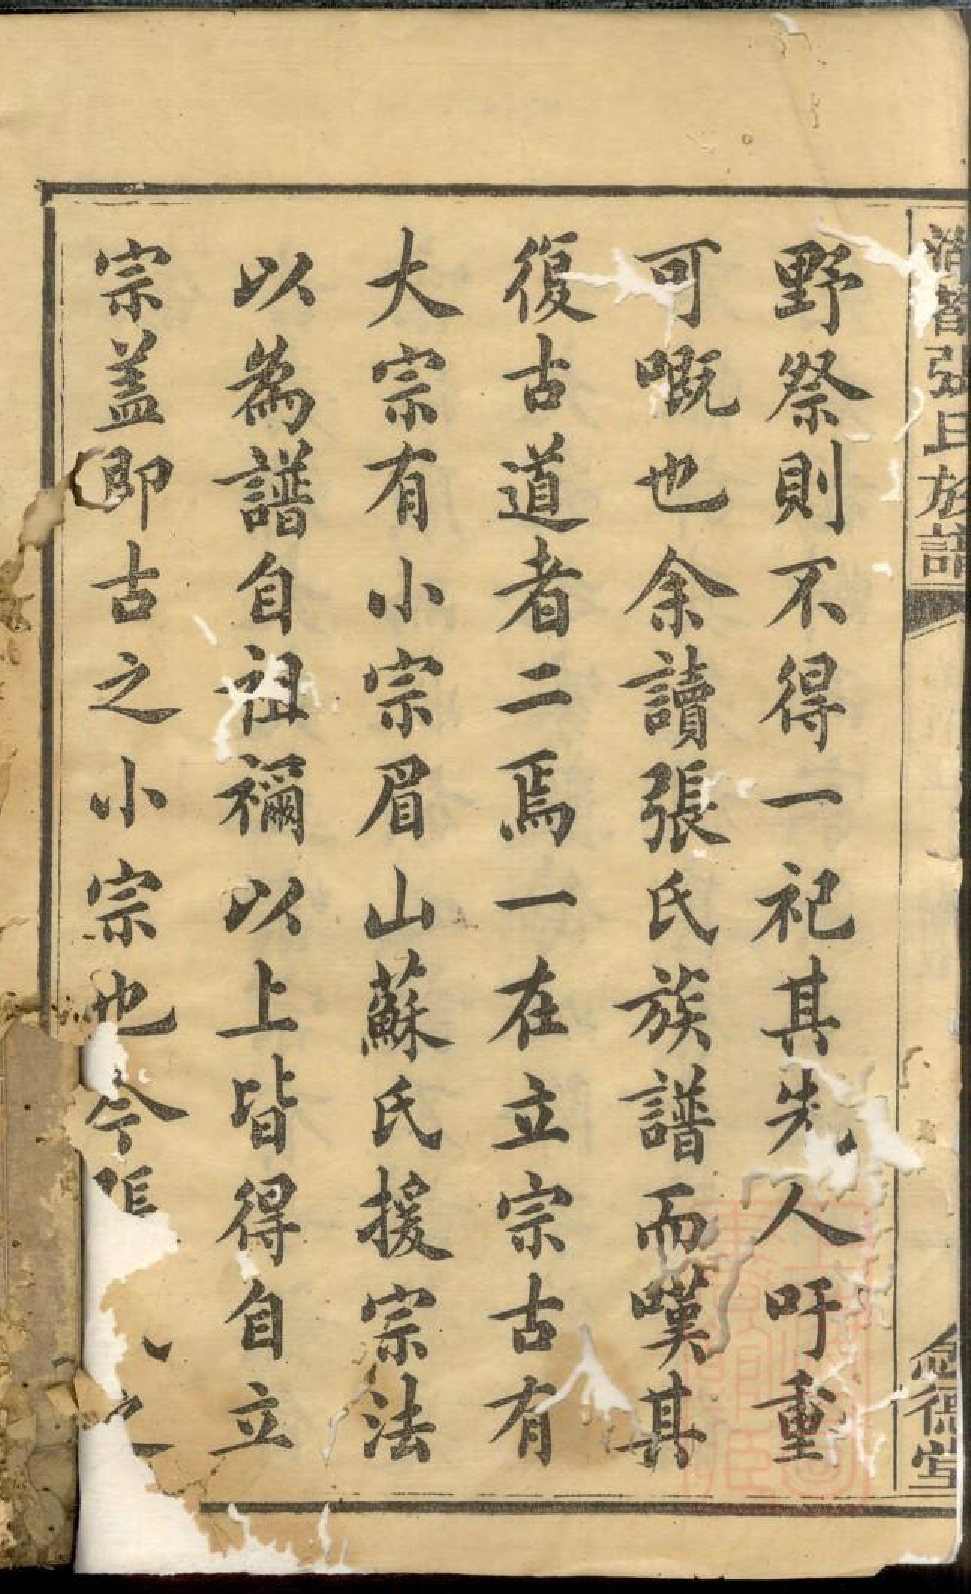 張氏族譜
德堂
野祭則不得一祀其先人吁重
可嘅也余讀張氏族譜而嘆其
復古道者二焉一在立宗古有
大宗有小宗眉山蘇氏援宗法
以為譜自祖禰以上皆得自立
宗盖即古之小宗也今張之